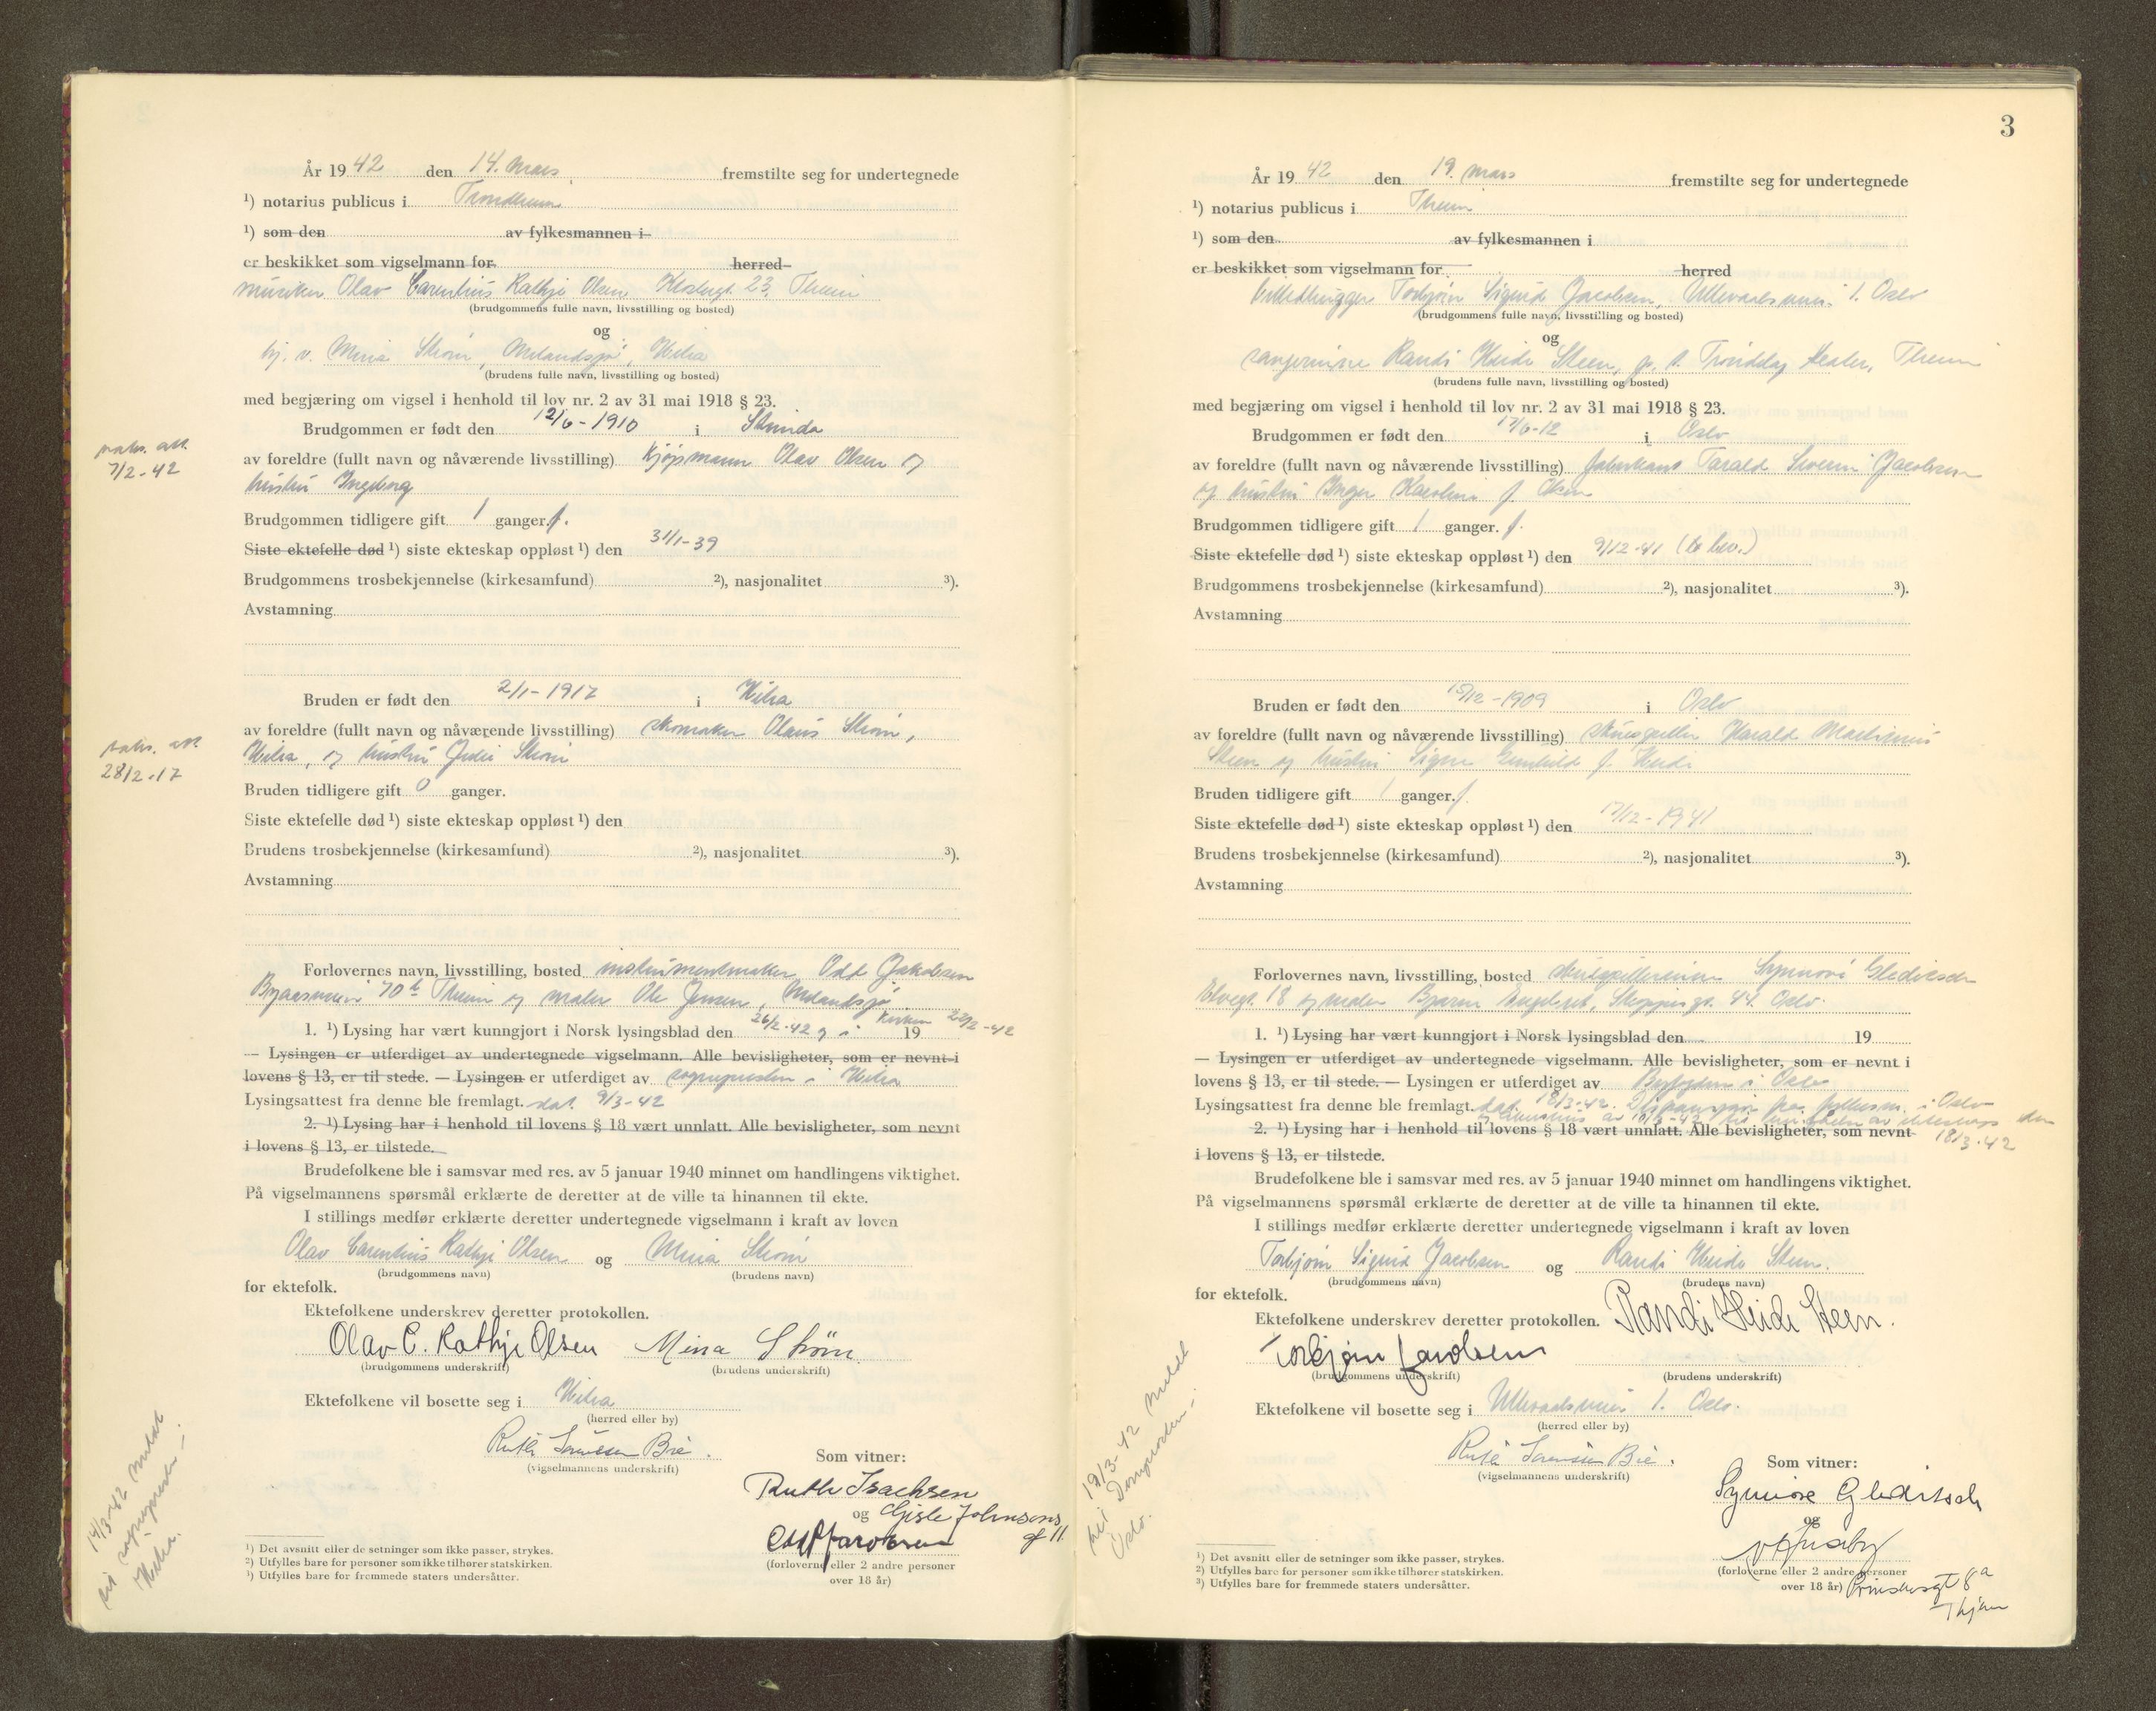 År 1942 den 14. mars fremstilte seg for undertegnede
¹) notarius publicus i Trondheim
¹) som den av fylkesmannen i
er beskikket som vigselmann for herred
musiker Olav Carentius Rathje Olsen 23, Theim
(brudgommens fulle navn, livsstilling og bosted)
og
hj. v. Mina Strøm, Melandsjø, Hitra
(brudens fulle navn, livsstilling og bosted)
med begjæring om vigsel i henhold til lov nr. 2 av 31 mai 1918 § 23.
Brudgommen er født den 12/6-1910 i Strinda
av foreldre (fullt navn og nåværende livsstilling) kjøpmann Olav Olsen og
hustru Ingeborg
Brudgommen tidligere gift 1 ganger f.
Siste ektefelle død ¹) siste ekteskap oppløst ¹) den 31/1-39
Brudgommens trosbekjennelse (kirkesamfund) ²), nasjonalitet ³).
Avstamning
att.
7/2-42
Bruden er født den 2/1-1917 i Hitra
av foreldre (fullt navn og nåværende livsstilling) skomaker Olaus Strøm,
Hitra, og hustru Strøm
att.
28/2.17
Bruden tidligere gift 0 ganger.
Siste ektefelle død ¹) siste ekteskap oppløst ¹) den
Brudens trosbekjennelse (kirkesamfund) ²), nasjonalitet ³).
Avstamning
Forlovernes navn, livsstilling, bosted instrumentmaker Odd Jakobsen
70 b Theim og maler Ole Jensen, Melandsjø
1. ¹) Lysing har vært kunngjort i Norsk lysingsblad den 26/2-42 og i kirken 22/2-42 19
— Lysingen er utferdiget av undertegnede vigselmann. Alle bevisligheter, som er nevnt i
lovens § 13, er til stede. — Lysingen er utferdiget av sognepresten i Hitra
Lysingsattest fra denne ble fremlagt. dat. 9/3-42
2. ¹) Lysing har i henhold til lovens § 18 vært unnlatt. Alle bevisligheter, som nevnt
i lovens § 13, er tilstede.
Brudefolkene ble i samsvar med res. av 5 januar 1940 minnet om handlingens viktighet.
På vigselmannens spørsmål erklærte de deretter at de ville ta hinannen til ekte.
I stillings medfør erklærte deretter undertegnede vigselmann i kraft av loven
Olav Carentius Rathje Olsen og Mina Strøm
(brudgommens navn) (brudens navn)
for ektefolk.
Ektefolkene underskrev deretter protokollen.
Olav C. Rathje Olsen Mina Strøm
(brudgommens underskrift) (brudens underskrift)
Ektefolkene vil bosette seg i Hitra
(herred eller by)
Ruth Sørenssen Bie.
(vigselmannens underskrift)
Som vitner:
Ruth Isachsen
og Gisle Johnsons gt 11
Odd Jacobsen
(forloverne eller 2 andre personer
over 18 år)
14/3-42 meldt
til sognepresten i
Hitra.
¹) Det avsnitt eller de setninger som ikke passer, strykes.
²) Utfylles bare for personer som ikke tilhører statskirken.
³) Utfylles bare for fremmede staters undersåtter.
3
År 1942 den 19. mars fremstilte seg for undertegnede
¹) notarius publicus i Theim
¹) som den av fylkesmannen i
er beskikket som vigselmann for herred
billedhugger Torbjørn Sigurd Jacobsen, Ullevaalsveien 1. Oslo
(brudgommens fulle navn, livsstilling og bosted)
og
sangerinne Randi Heide Steen, p. t. Trøndelag teater, Theim
(brudens fulle navn, livsstilling og bosted)
med begjæring om vigsel i henhold til lov nr. 2 av 31 mai 1918 § 23.
Brudgommen er født den 17/6-12 i Oslo
av foreldre (fullt navn og nåværende livsstilling) Tarald Severin Jacobsen
og hustru Inger f. Olsen
Brudgommen tidligere gift 1 ganger. f.
Siste ektefelle død ¹) siste ekteskap oppløst ¹) den 9/12-41 (to bev.)
Brudgommens trosbekjennelse (kirkesamfund) ²), nasjonalitet ³).
Avstamning
Bruden er født den 15/12-1909 i Oslo
av foreldre (fullt navn og nåværende livsstilling) skuespiller Harald Martinius
Steen og hustru Signe f. Heide
Bruden tidligere gift 1 ganger. f.
Siste ektefelle død ¹) siste ekteskap oppløst ¹) den 17/12-1941
Brudens trosbekjennelse (kirkesamfund) ²), nasjonalitet ³).
Avstamning
Forlovernes navn, livsstilling, bosted skuespillerinne Synnøve Gleditsch
18 og maler Bjarne Engebret, gt. 44. Oslo.
1. ¹) Lysing har vært kunngjort i Norsk lysingsblad den 19
— Lysingen er utferdiget av undertegnede vigselmann. Alle bevisligheter, som er nevnt i
lovens § 13, er til stede. — Lysingen er utferdiget av Byfogden i Oslo
Lysingsattest fra denne ble fremlagt. dat. 18/3-42. fra fylkesm. i Oslo
18/3-42
2. ¹) Lysing har i henhold til lovens § 18 vært unnlatt. Alle bevisligheter, som nevnt
i lovens § 13, er tilstede.
Brudefolkene ble i samsvar med res. av 5 januar 1940 minnet om handlingens viktighet.
På vigselmannens spørsmål erklærte de deretter at de ville ta hinannen til ekte.
I stillings medfør erklærte deretter undertegnede vigselmann i kraft av loven
Torbjørn Sigurd Jacobsen og Randi Heide Steen.
(brudgommens navn) (brudens navn)
for ektefolk.
Ektefolkene underskrev deretter protokollen. Randi Heide Steen.
Torbjørn Jacobsen
(brudgommens underskrift) (brudens underskrift)
Ektefolkene vil bosette seg i Ullevaalsveien 1. Oslo.
(herred eller by)
Ruth Sørenssen Bie.
(vigselmannens underskrift)
Som vitner:
Synnøve Gleditsch
og
(forloverne eller 2 andre personer
over 18 år) Prinsensgt 8a
Thjem
19/3-42 meldt
til Domprosten i
Oslo.
¹) Det avsnitt eller de setninger som ikke passer, strykes.
²) Utfylles bare for personer som ikke tilhører statskirken.
³) Utfylles bare for fremmede staters undersåtter.